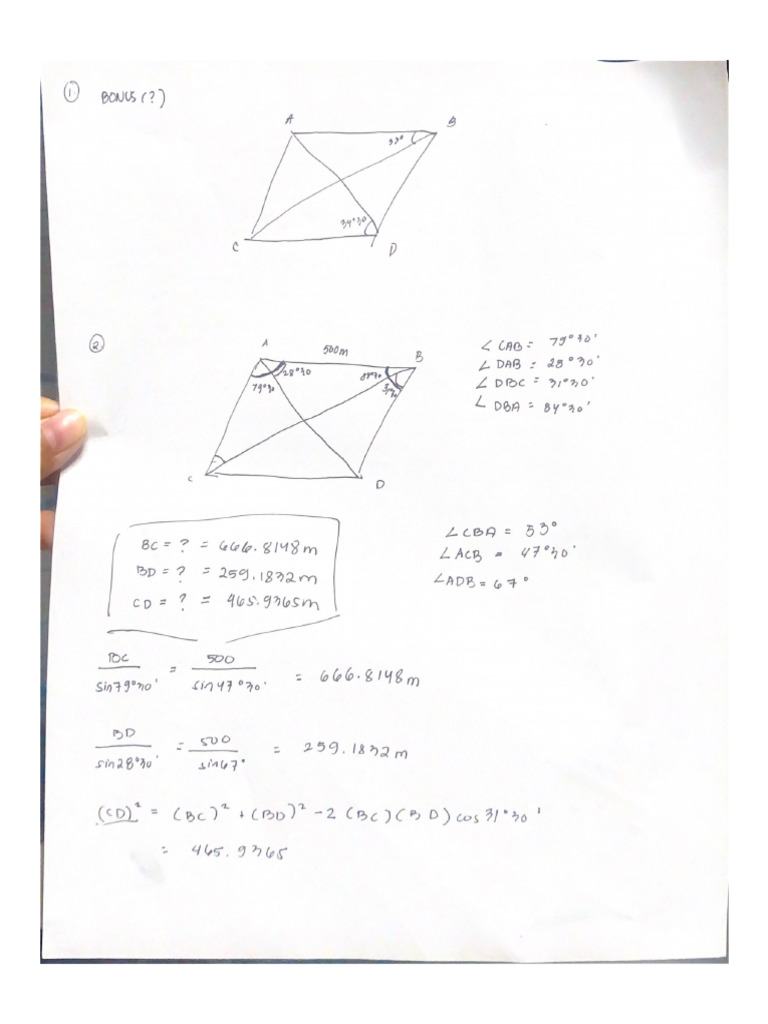 ① BONUS (?)
A
B
53°
34°30
C
D
②
A
500m
B
28°30
79°30
C
D
∠ CAB = 79°30'
∠ DAB = 28°30'
∠ DBC = 31°30'
∠ DBA = 84°30'
BC = ? = 666.8148 m
BD = ? = 259.1832 m
CD = ? = 465.9365 m
∠ CBA = 53°
∠ ACB = 47°30'
∠ ADB = 67°
BC / sin 79°30' = 500 / sin 47°30' = 666.8148 m
BD / sin 28°30' = 500 / sin 67° = 259.1832 m
(CD)² = (BC)² + (BD)² - 2 (BC)(BD) cos 31°30'
= 465.9365